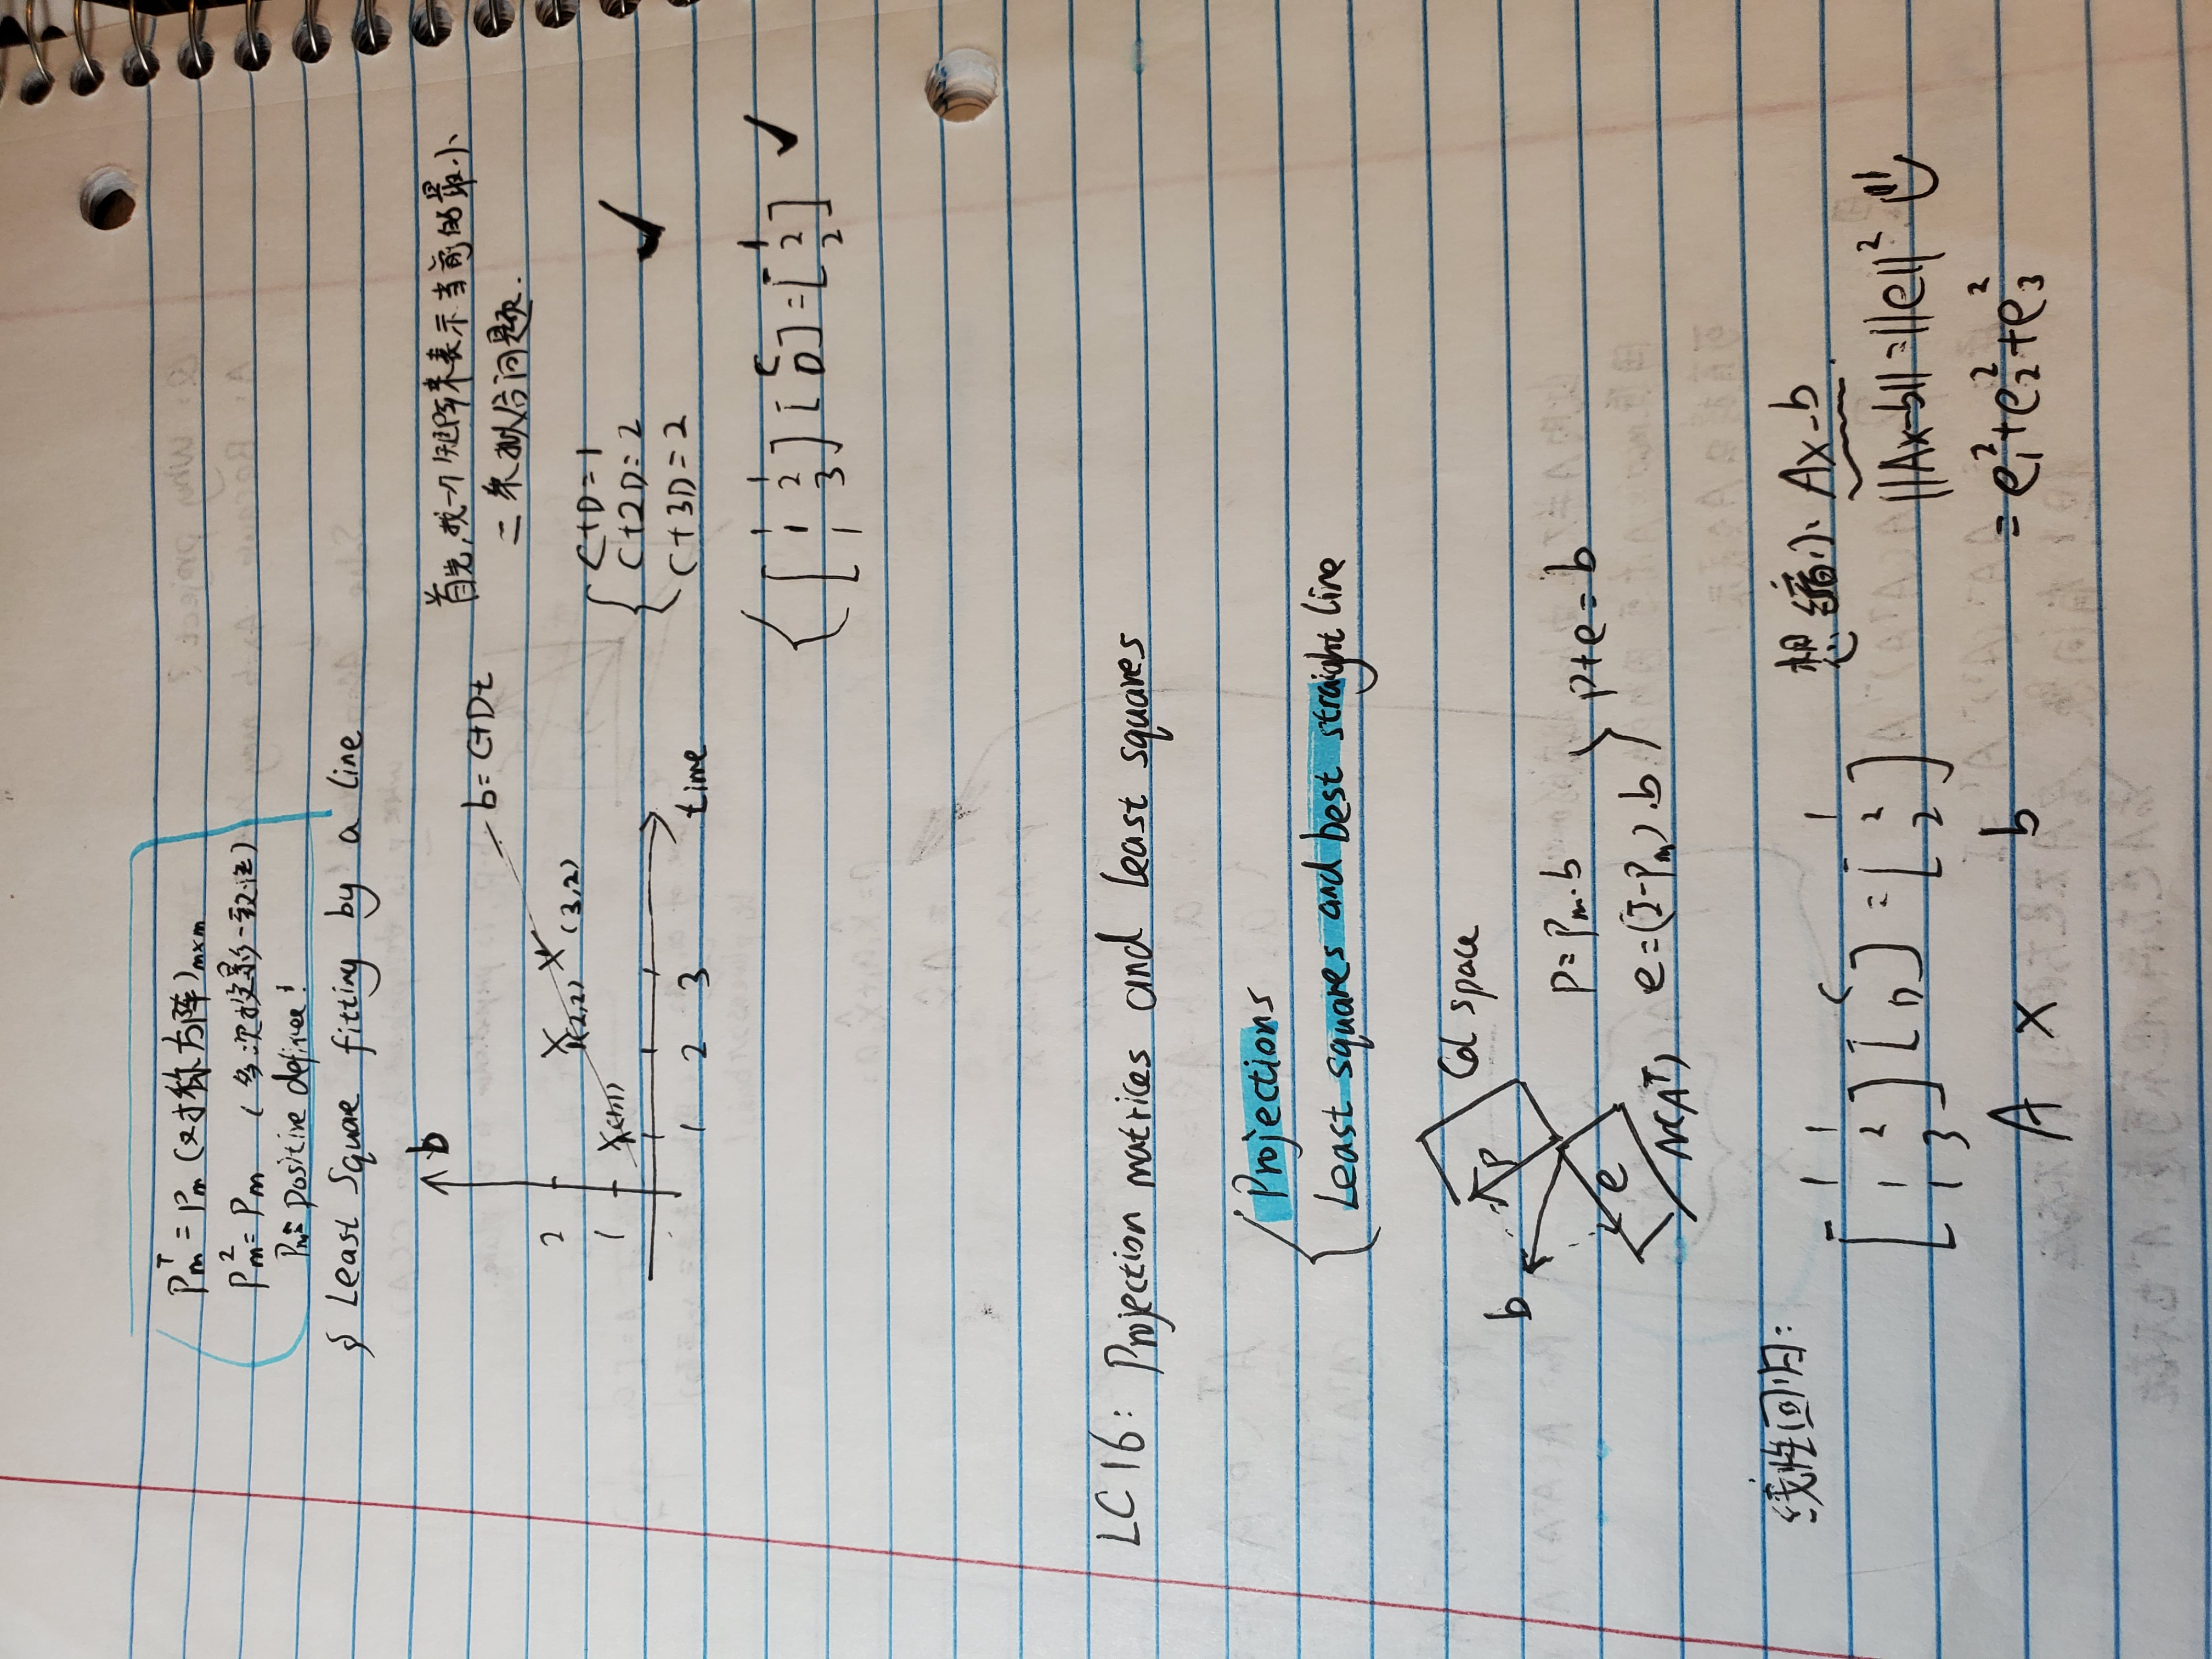 Pₘᵀ = Pₘ (对称方阵)ₘₓₘ
Pₘ² = Pₘ (多次投影一致性)
Pₘ = positive definee!
§ Least Squae fitting by a line
b
b = C+Dt
首先,找一个矩阵来表示当前的最小
二乘拟合问题.
2
(2,2) (3,2)
1
(1,1)
1 2 3 time
C+D=1
C+2D=2
C+3D=2
[1 1
1 2
1 3] [C
D] = [1
2
2]
LC16: Projection matrices and least squares
Projections
Least squares and best straight line
Col space
p
b
e
N(Aᵀ)
p = Pₘ.b
e = (I-Pₘ).b
p+e=b
线性回归:
[1 1
1 2
1 3] [C
D] = [1
2
2]
A x b
想缩小 Ax-b.
||Ax-b|| = ||e||²
= e₁²+e₂²+e₃²